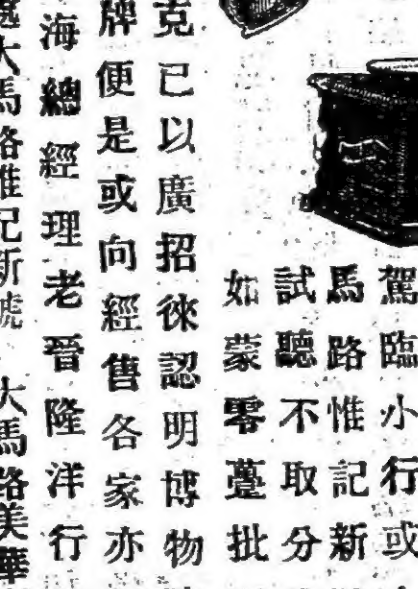 駕臨小行或
馬路惟記新
試聽不取分
如蒙零躉批
克已以廣招徠認明博物
牌便是或向經售各家亦
海總經理老晉隆洋行
大馬路惟記新號 大馬路美華